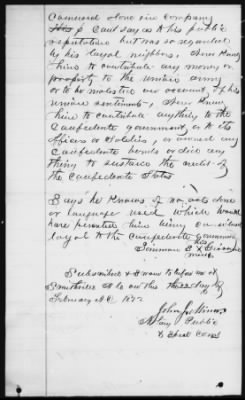 cancured alone in company
His & Cant say as to his public
reputation but was so regarded
by his loyal neighbors, Never knew
him to contribute any money or
property to the union army
or to be molested on account of his
union sentiments, Never knew
him to contribute anything to the
Confederate government, or to its
officers or soldiers, or owned any
Confederate bonds or did any
thing to sustain the credit of
the Confederate States
Says he knows of no acts done
or language used which would
have prevented him being
loyal to the Confederate government
his
Simmon S X
mark
Subscribed & Sworn to before me at
on this day of
February AD 187
John J
Notary Public
& Special Coms